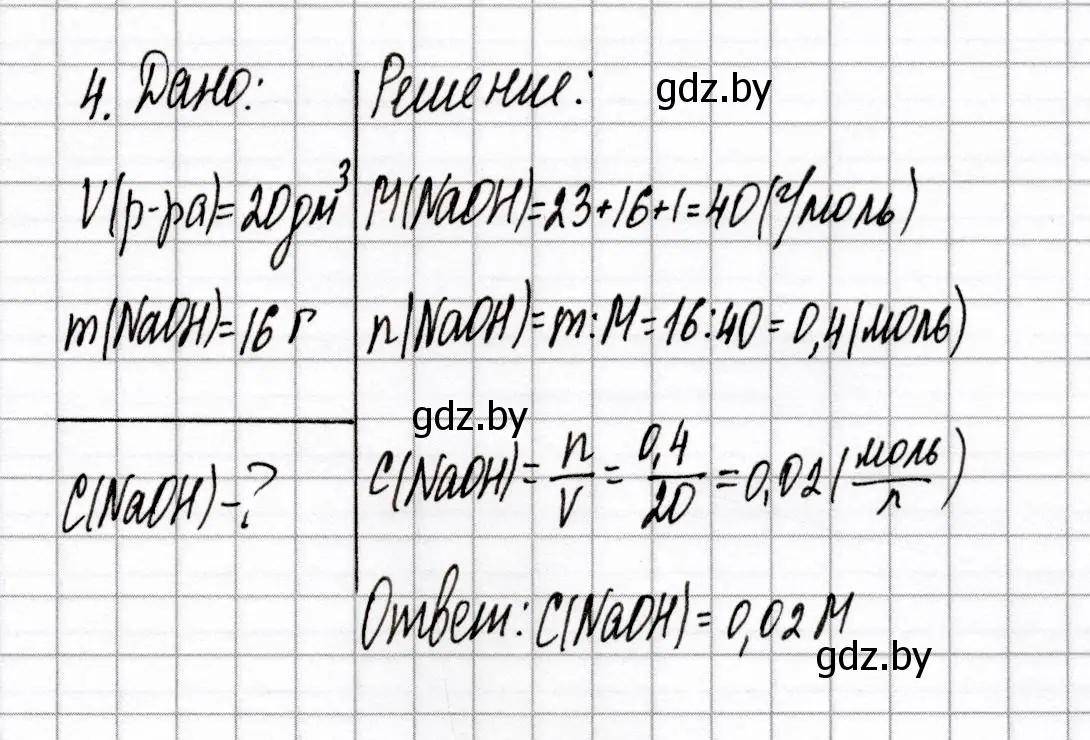 4. Дано:
V(р-ра)=20дм³
m(NaOH)=16 г
C(NaOH)-?
Решение:
gdz.by
M(NaOH)=23+16+1=40(г/моль)
n(NaOH)=m:M=16:40=0,4(моль)
gdz.by
C(NaOH)=n/V=0,4/20=0,02(моль/л)
Ответ: C(NaOH)=0,02М
gdz.by